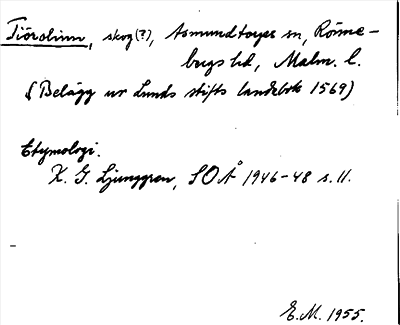 Tiörolinn, skog(?), Asmundtorps sn, Rönne-
bergs hd, Malm. l.
(Belägg ur Lunds stifts landebok 1569)
Etymologi.
K. G. Ljunggren, SOÅ 1946-48 s. 11.
E.M. 1955.